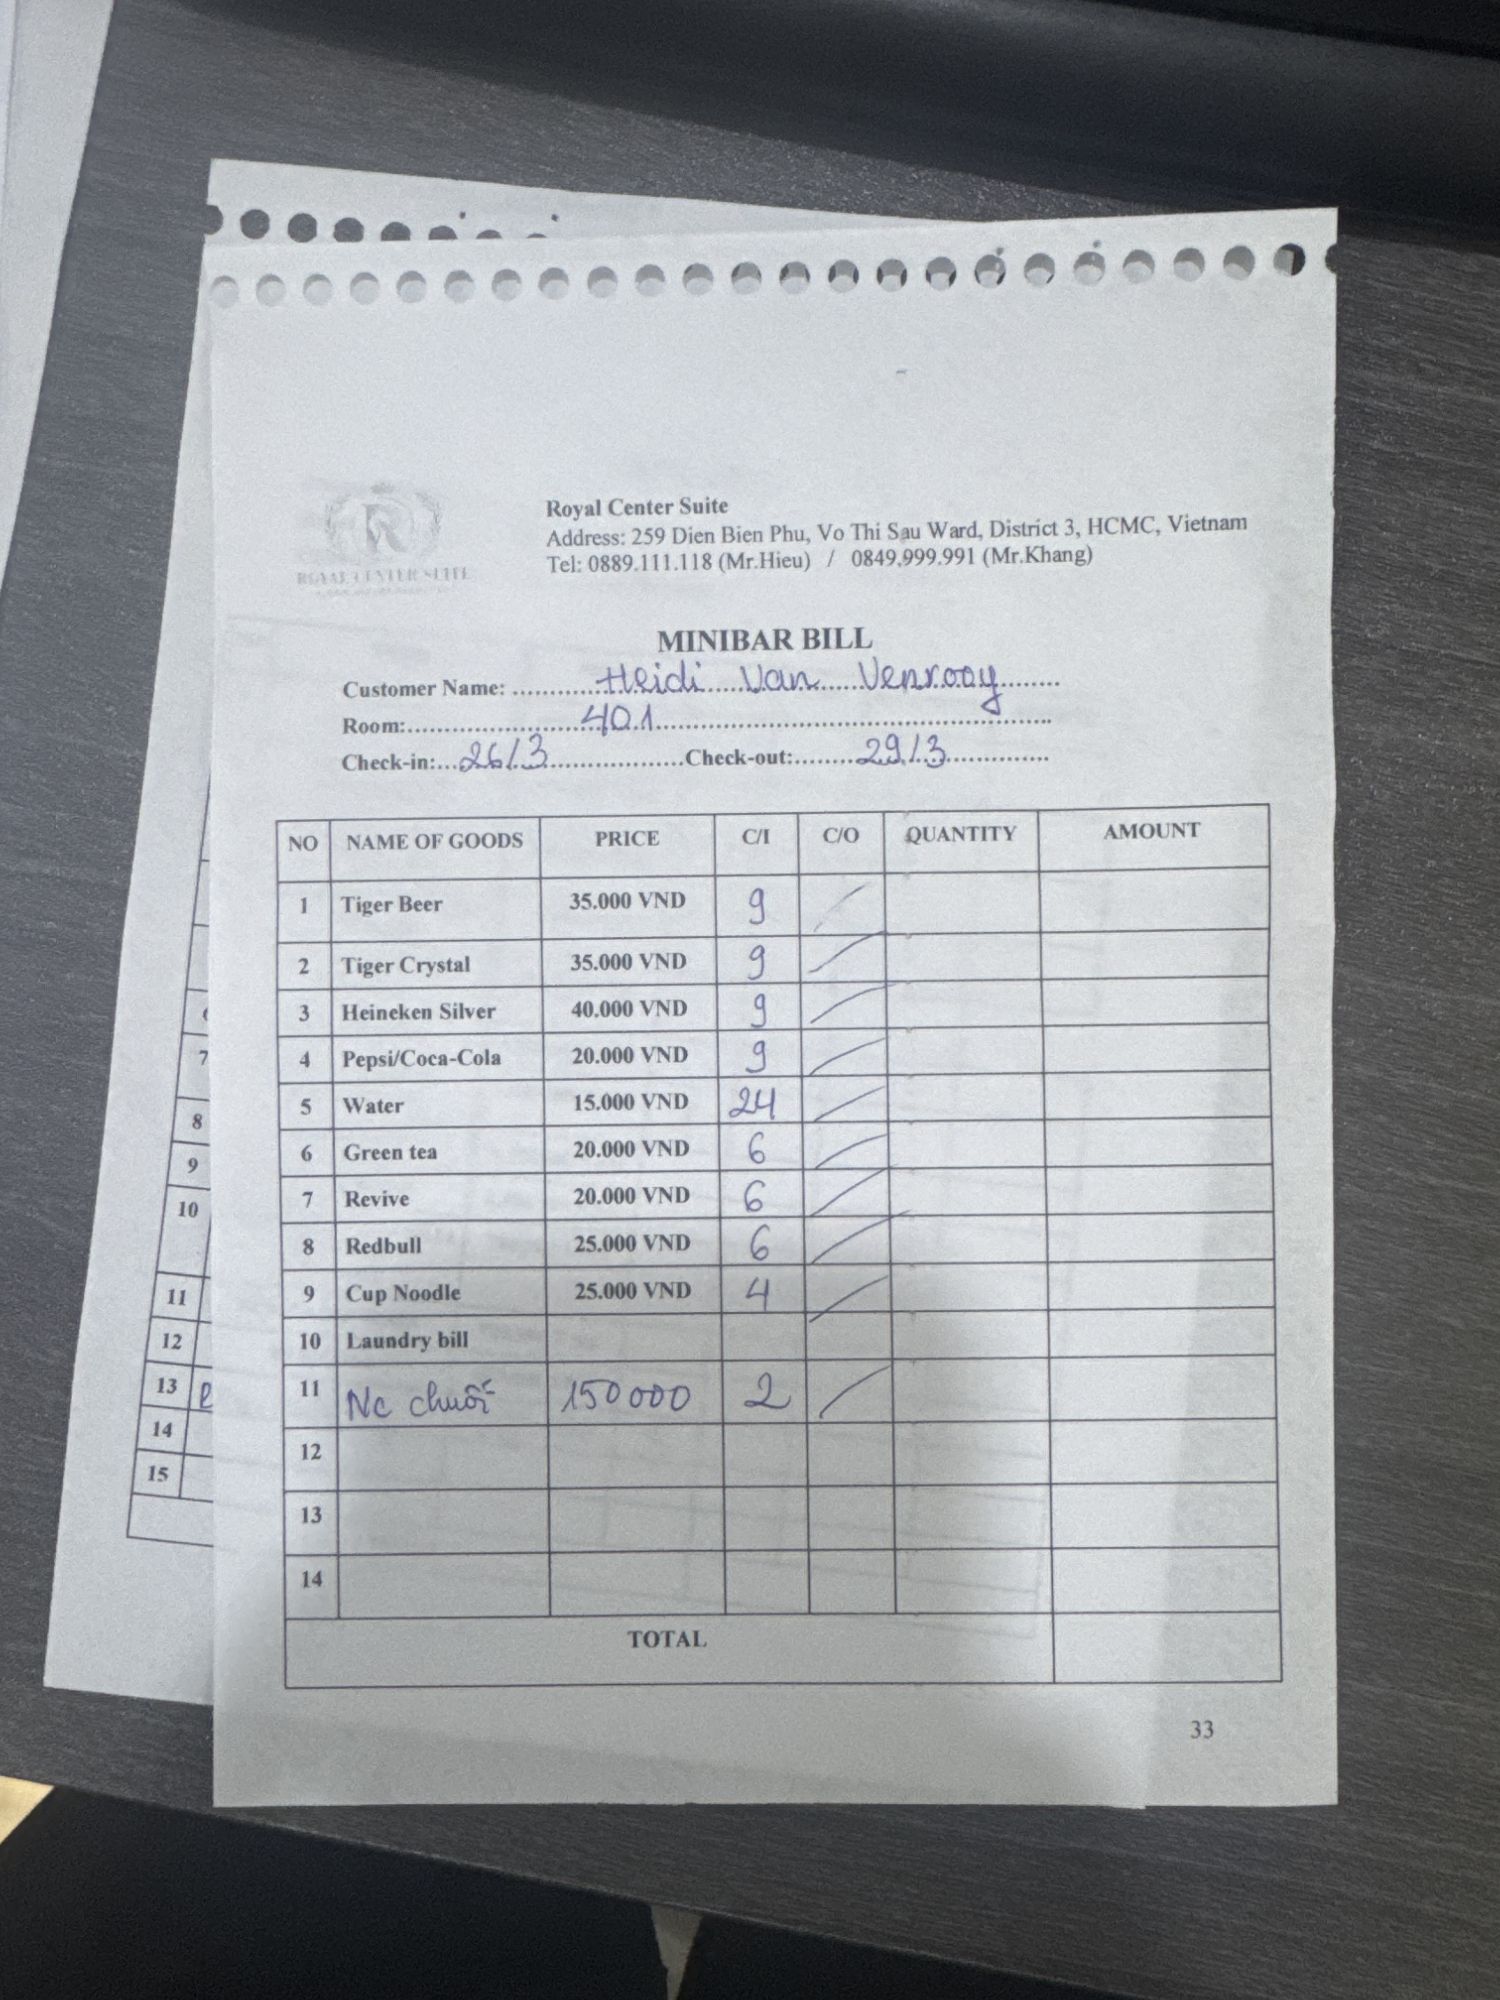 ROYAL CENTER SUITE
Royal Center Suite
Address: 259 Dien Bien Phu, Vo Thi Sau Ward, District 3, HCMC, Vietnam
Tel: 0889.111.118 (Mr.Hieu) / 0849.999.991 (Mr.Khang)
MINIBAR BILL
Customer Name: Heidi Van Venrooy
Room: 401
Check-in: 26/3 Check-out: 29/3
NO NAME OF GOODS PRICE C/I C/O QUANTITY AMOUNT
1 Tiger Beer 35.000 VND 9 /
2 Tiger Crystal 35.000 VND 9 /
3 Heineken Silver 40.000 VND 9 /
4 Pepsi/Coca-Cola 20.000 VND 9 /
5 Water 15.000 VND 24 /
6 Green tea 20.000 VND 6 /
7 Revive 20.000 VND 6 /
8 Redbull 25.000 VND 6 /
9 Cup Noodle 25.000 VND 4 /
10 Laundry bill
11 Nc chuối 150000 2 /
12
13
14
TOTAL
33
7
8
9
10
11
12
13
14
15